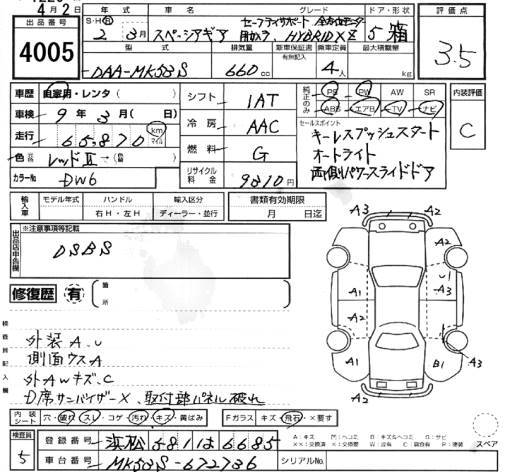 4月2日
出品番号
4005
年式 車名 グレード ドア・形状 評価点
S・H・R 2年 3月 スペーシアギア HYBRID XZ 5 箱 3.5
セーフティサポート 全方位モニター用カメラ
型式 排気量 新車保証書 有無記入 乗車定員 最大積載量
DAA-MK53S 660 cc 4人 kg
車歴 自家用・レンタ シフト 1AT 純正のみ PS PW AW SR 内装評価
ABS エアB TV ナビ C
車検 9年 3月( 日) 冷房 AAC セールスポイント
走行 65,870 km マイル キーレスプッシュスタート
オートライト
燃料 G 両側パワースライドドア
色 レッドⅡ
カラーNo DW6 リサイクル料金 9810円
輸入車 モデル年式 ハンドル 輸入区分 書類有効期限
右H・左H ディーラー・並行 月 日迄
出品店申告欄 ※注意事項等記載
DSBS
修復歴 有 箇所
A3 A2
A2 A2
U1
A1 A2
A1
A2 B1 A3
A2 A2
検査員記入欄
外装A、U
側面ウスA
外AWキズ、C
D席サンバイザー×、取付部パネル破れ
内装シート 穴・塗れ・スレ・コゲ・汚れ・キズ・黄ばみ Fガラス キズ・飛石・×要す
スペア
検査員 5 登録番号 浜松581は6685
車台番号 MK53S-672736 シリアルNo.